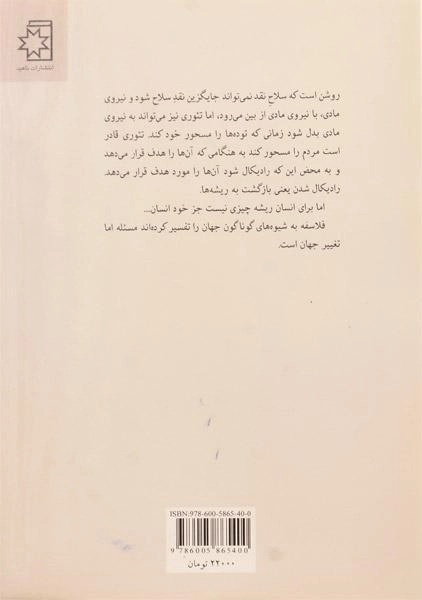 انتشارات ناهید
روشن است که سلاحِ نقد نمی‌تواند جایگزین نقدِ سلاح شود و نیروی
مادی، با نیروی مادی از بین می‌رود، اما تئوری نیز می‌تواند به نیروی
مادی بدل شود زمانی که توده‌ها را مسحور خود کند. تئوری قادر
است مردم را مسحور کند به هنگامی که آن‌ها را هدف قرار می‌دهد
و به محض این که رادیکال شود آن‌ها را مورد هدف قرار می‌دهد.
رادیکال شدن یعنی بازگشت به ریشه‌ها.
اما برای انسان ریشه چیزی نیست جز خود انسان...
فلاسفه به شیوه‌های گوناگون جهان را تفسیر کرده‌اند مسئله اما
تغییر جهان است.
ISBN:978-600-5865-40-0
9 786005 865400
۲۲۰۰۰ تومان